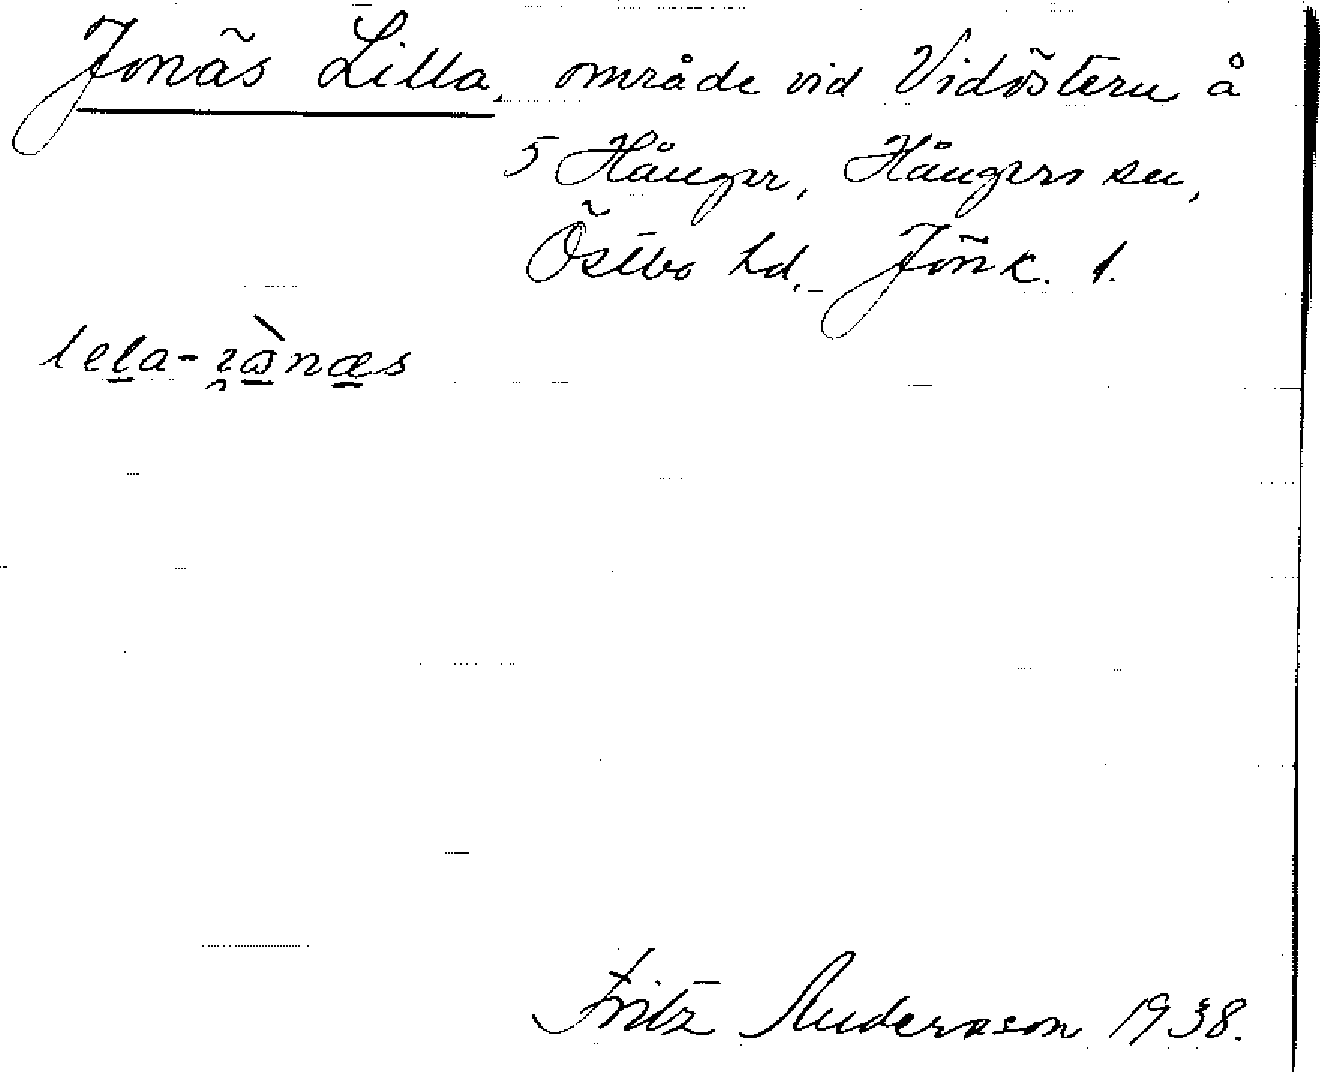 Jonäs Lilla, område vid Vidöstern å
5 Hånger, Hångers sn,
Östbo hd, Jönk. l.
lela-
Fritz Andersson 1938.